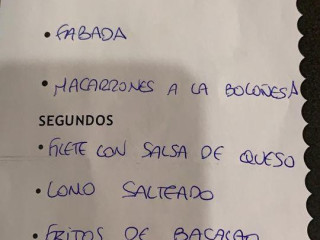 • FABADA
• MACARRONES A LA BOLOÑESA
SEGUNDOS
• FILETE CON SALSA DE QUESO
• LOMO SALTEADO
• FRITOS DE BACALAO